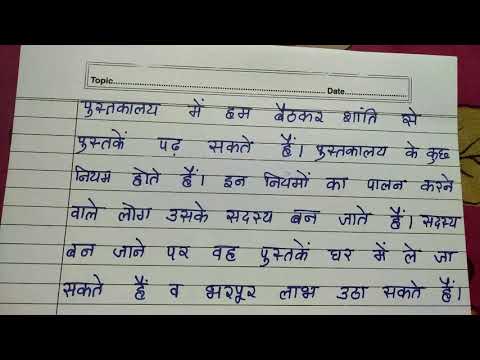 Topic.................... Date....................
पुस्तकालय में हम बैठकर शांति से
पुस्तकें पढ़ सकते हैं। पुस्तकालय के कुछ
नियम होते हैं। इन नियमों का पालन करने
वाले लोग उसके सदस्य बन जाते हैं। सदस्य
बन जाने पर वह पुस्तकें घर में ले जा
सकते हैं व भरपूर लाभ उठा सकते हैं।